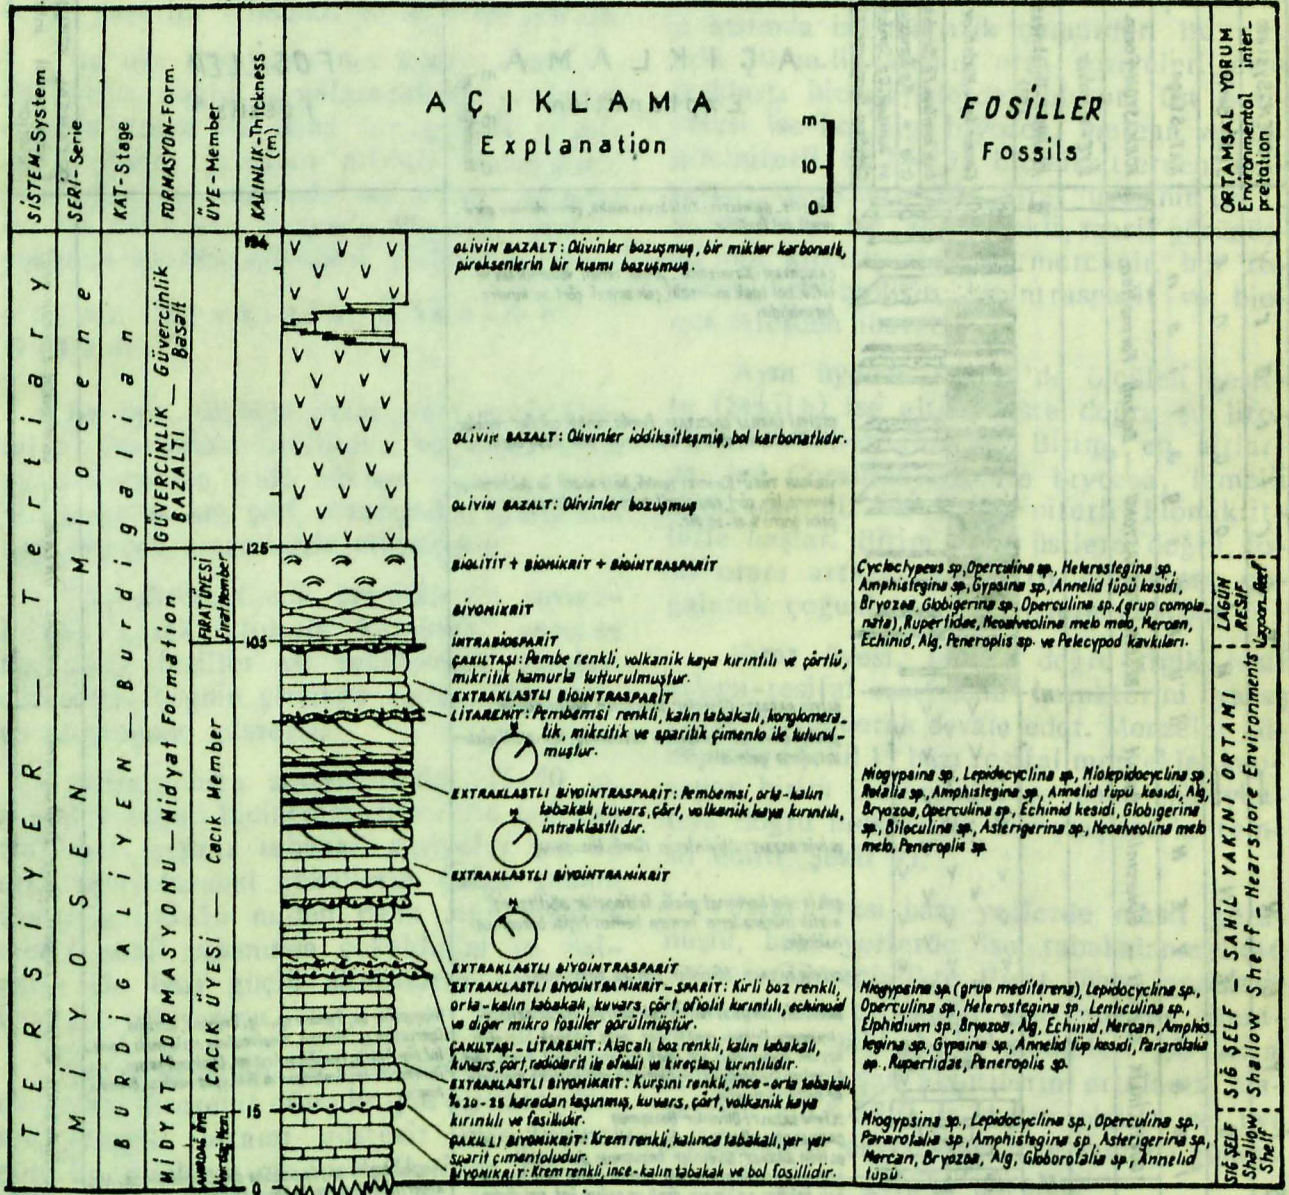 SİSTEM-System
SERİ-Serie
KAT-Stage
FORMASYON-Form.
ÜYE-Member
KALINLIK-Thickness
(m)
AÇIKLAMA
Explanation
m
10
0
FOSİLLER
Fossils
ORTAMSAL YORUM
Environmental inter-
pretation
TERSİYER — Tertiary
MİYOSEN — Miocene
BURDİGALİYEN — Burdigalian
GÜVERCİNLİK — Güvercinlik
BAZALTI Basalt
MİDYAT FORMASYONU — Midyat Formation
FIRAT ÜYESİ
Fırat Member
CACIK ÜYESİ — Cacık Member
194
125
105
15
0
OLİVİN BAZALT: Olivinler bozuşmuş, bir miktar karbonatlı,
piroksenlerin bir kısmı bozuşmuş.
OLİVİN BAZALT: Olivinler iddiksitleşmiş, bol karbonatlıdır.
OLİVİN BAZALT: Olivinler bozuşmuş
BİOLİTİT + BİOMİKRİT + BİOİNTRASPARİT
BİYOMİKRİT
İNTRABİOSPARİT
ÇAKILTAŞI: Pembe renkli, volkanik kaya kırıntılı ve çörtlü,
mikritik hamurla tutturulmuştur.
EXTRAKLASTLI BİOİNTRASPARİT
LİTARENİT: Pembemsi renkli, kalın tabakalı, konglomera-
lık, mikritik ve sparitik çimento ile tuturul-
muştur.
N
EXTRAKLASTLI BİYOİNTRASPARİT: Pembemsi, orta-kalın
tabakalı, kuvars, çört, volkanik kaya kırıntılı,
intraklastlıdır.
N
EXTRAKLASTLI BİYOİNTRAMİKRİT
N
EXTRAKLASTLI BİYOİNTRASPARİT
EXTRAKLASTLI BİYOİNTRAMİKRİT-SPARİT: Kirli boz renkli,
orta-kalın tabakalı, kuvars, çört, ofiolit kırıntılı, echinoid
ve diğer mikro fosiller görülmüştür.
ÇAKILTAŞI-LİTARENİT: Alacalı boz renkli, kalın tabakalı,
kuvars, çört, radiolarit ile ofiolit ve kireçtaşı kırıntılıdır.
EXTRAKLASTLI BİYOMİKRİT: Kurşini renkli, ince-orta tabakalı,
%20-25 karadan taşınmış, kuvars, çört, volkanik kaya
kırıntılı ve fosillidir.
ÇAKILLI BİYOMİKRİT: Krem renkli, kalınca tabakalı, yer yer
sparit çimentoludur.
BİYOMİKRİT: Krem renkli, ince-kalın tabakalı ve bol fosillidir.
Cycloclypeus sp, Operculina sp., Heterostegina sp.,
Amphistegina sp., Gypsina sp., Annelid tüpü kesidi,
Bryozoa, Globigerina sp., Operculina sp. (grup compla-
nata), Rupertidae, Neoalveolina melo melo, Mercan,
Echinid, Alg, Peneroplis sp. ve Pelecypod kavkıları.
Miogypsina sp., Lepidocyclina sp., Miolepidocyclina sp.,
Rotalia sp., Amphistegina sp., Annelid tüpü kesidi, Alg,
Bryozoa, Operculina sp., Echinid kesidi, Globigerina
sp., Biloculina sp., Asterigerina sp., Neoalveolina melo
melo, Peneroplis sp.
Miogypsina sp. (grup mediterena), Lepidocyclina sp.,
Operculina sp., Heterostegina sp., Lenticulina sp.,
Elphidium sp., Bryozoa, Alg, Echinid, Mercan, Amphis-
tegina sp., Gypsina sp., Annelid tüp kesidi, Pararotalia
sp., Rupertidae, Peneroplis sp.
Miogypsina sp., Lepidocyclina sp., Operculina sp.,
Pararotalia sp., Amphistegina sp., Asterigerina sp.,
Mercan, Bryozoa, Alg, Globorotalia sp., Annelid
tüpü.
LAGÜN
RESİF
Lagoon, Reef
SIĞ ŞELF - SAHİL YAKINI ORTAMI
Shallow Shelf - Nearshore Environments
SIĞ ŞELF
Shallow
Shelf